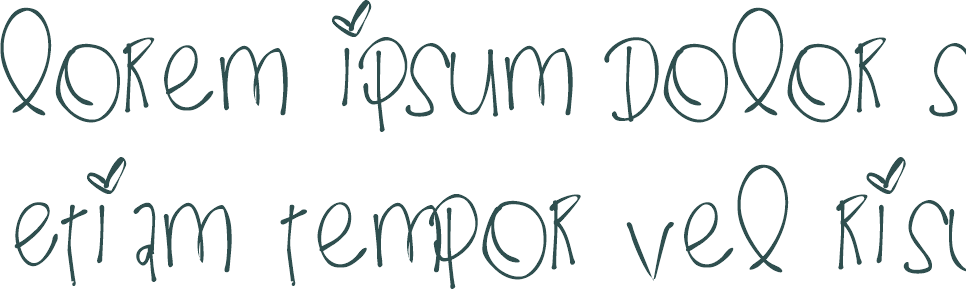 lorem ipsum dolor s
etiam tempor vel risu